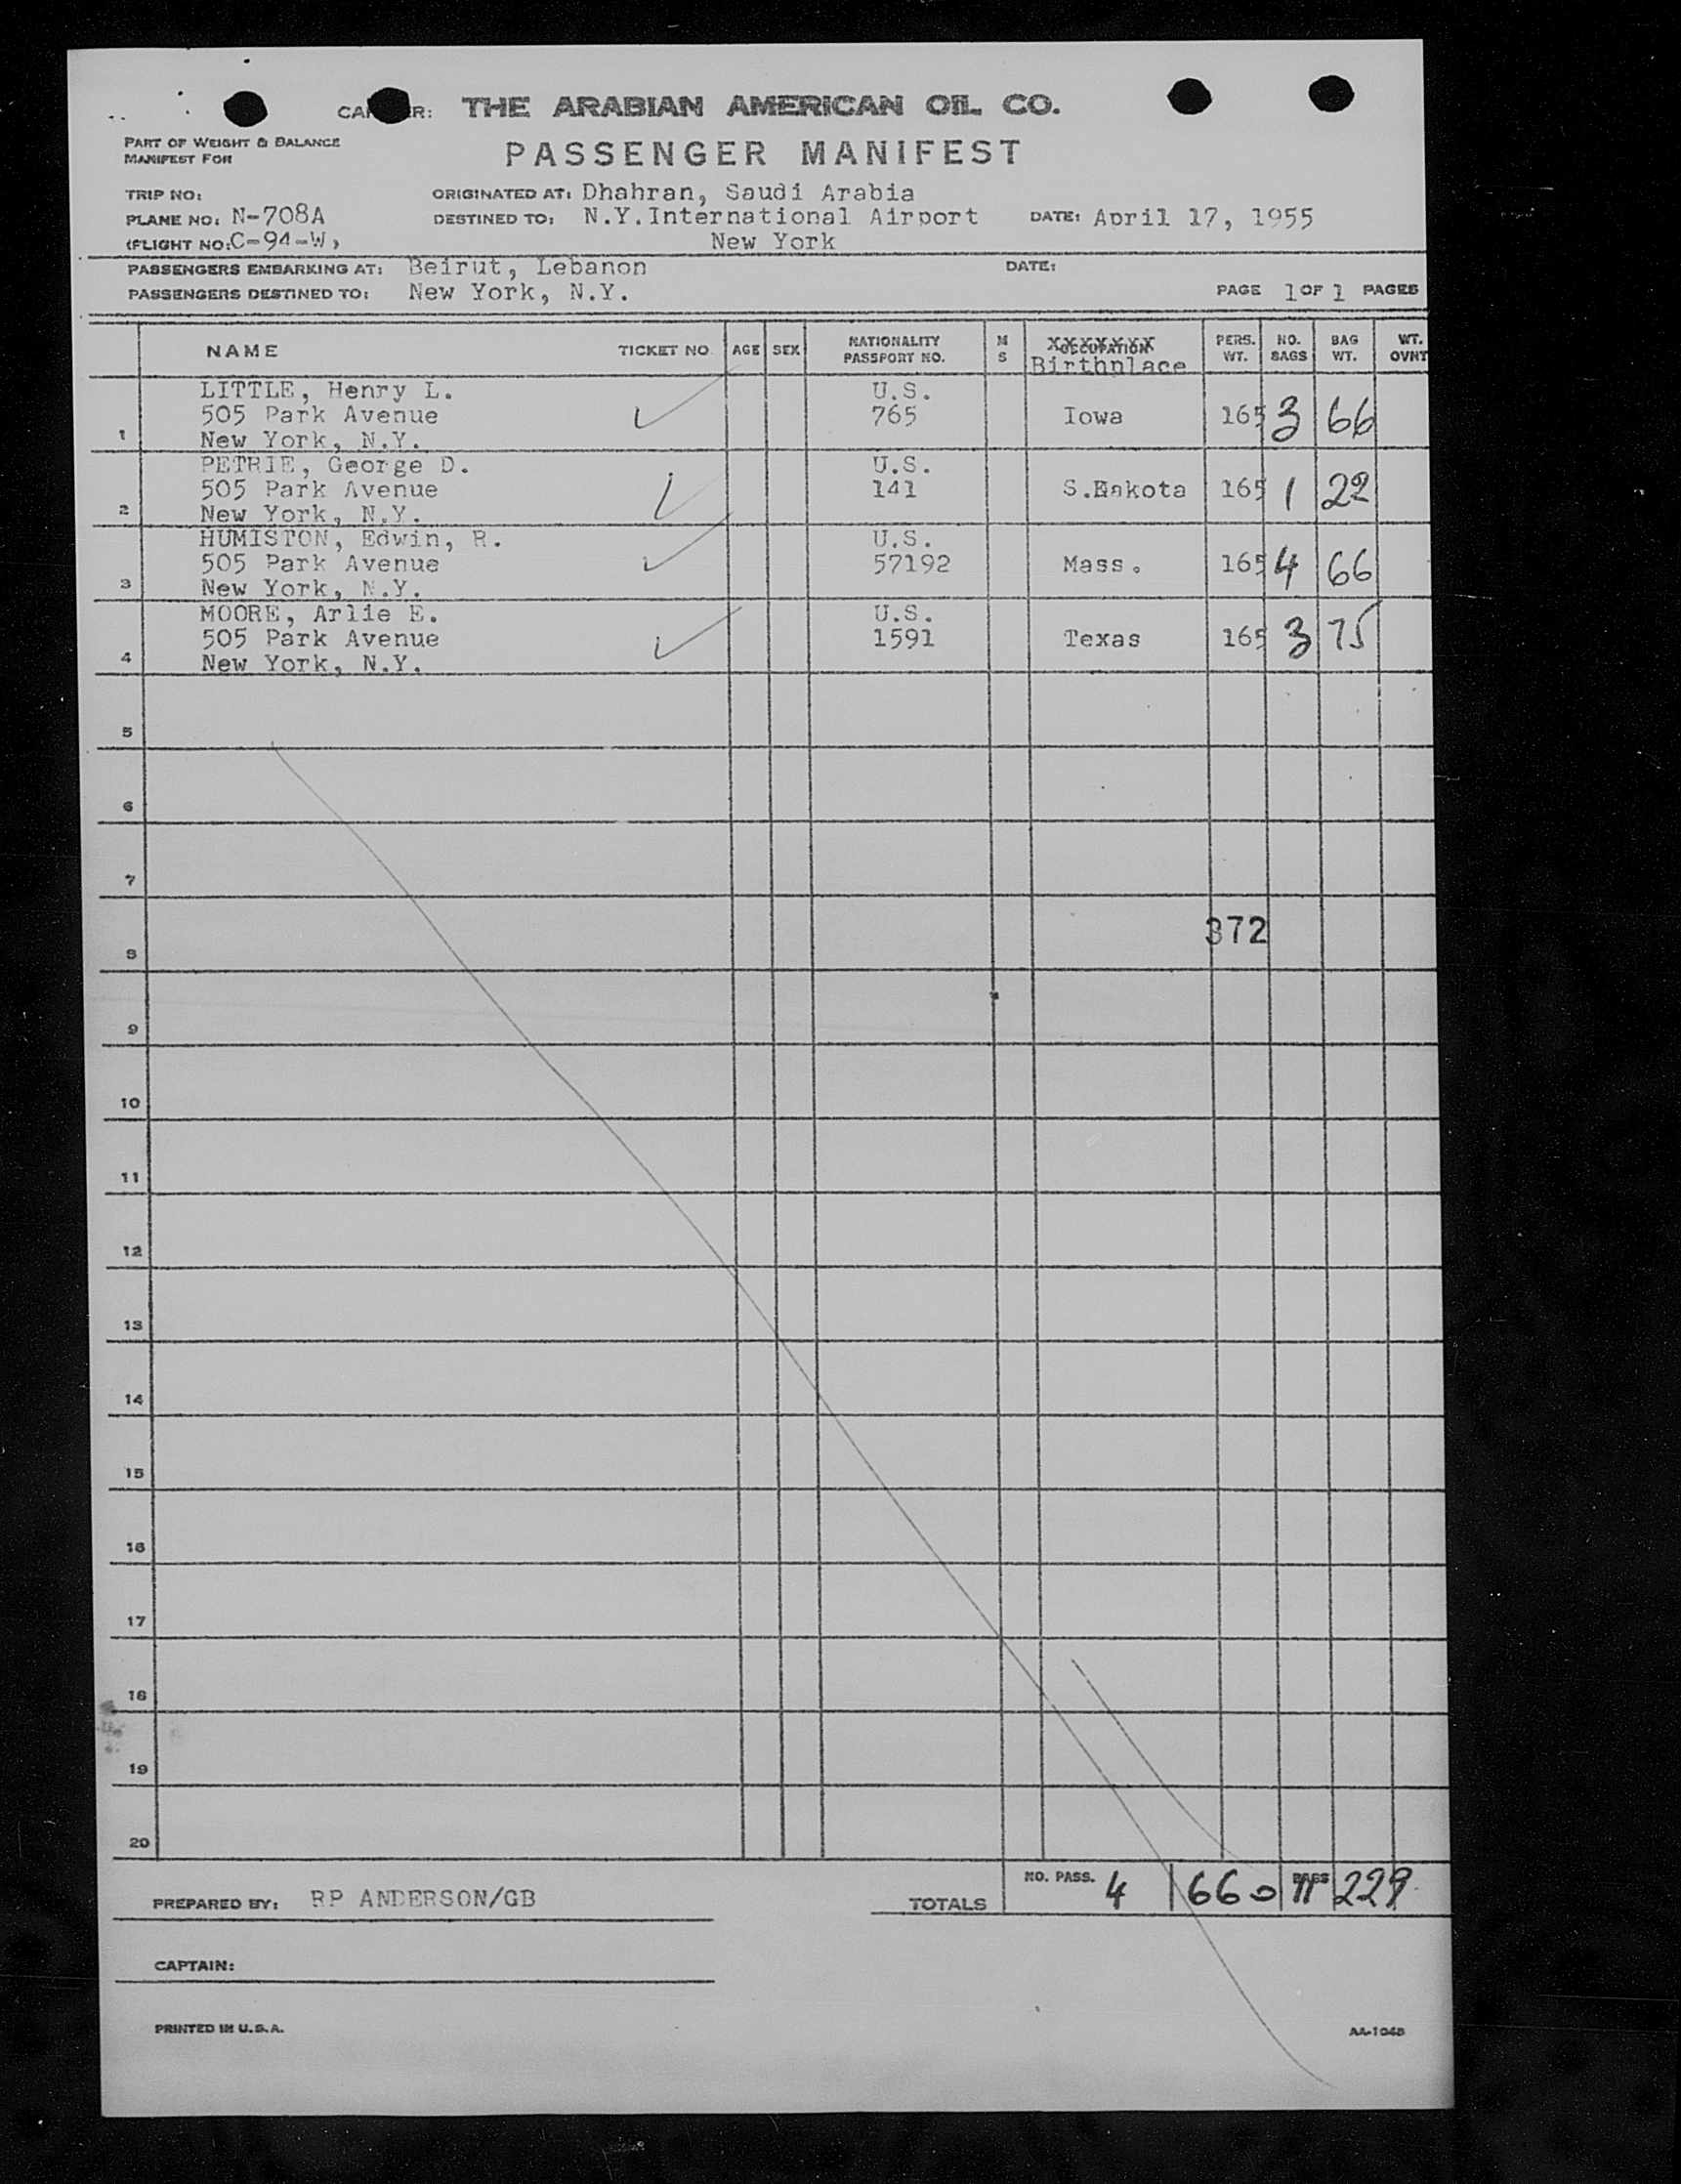 THE ARABIAN AMERICAN OIL CO.
PART OF WEIGHT & BALANCE
MANIFEST FOR
PASSENGER MANIFEST
TRIP NO:
ORIGINATED AT: Dhahran, Saudi Arabia
PLANE NO: N-708A
DESTINED TO: N.Y.International Airport
DATE: April 17, 1955
(FLIGHT NO:C-94-W)
New York
PASSENGERS EMBARKING AT: Beirut, Lebanon
DATE:
PASSENGERS DESTINED TO: New York, N.Y.
PAGE 1 OF 1 PAGES
NAME TICKET NO. AGE SEX NATIONALITY PASSPORT NO. M S XXXXXXX Birthplace PERS. WT. NO. BAGS BAG WT. WT. OVNT
LITTLE, Henry L. U.S.
505 Park Avenue 765 Iowa 165 3 66
1 New York, N.Y.
PETRIE, George D. U.S.
505 Park Avenue 141 165 1 22
2 New York, N.Y.
HUMISTON, Edwin, R. U.S.
505 Park Avenue 57192 Mass. 165 4 66
3 New York, N.Y.
MOORE, Arlie E. U.S.
505 Park Avenue 1591 Texas 165 3 75
4 New York, N.Y.
5
6
7
372
8
9
10
11
12
13
14
15
16
17
18
19
20
PREPARED BY: RP ANDERSON/GB
TOTALS NO. PASS. 4 660 BAGS 11 229
CAPTAIN:
PRINTED IN U.S.A.
AA-1048